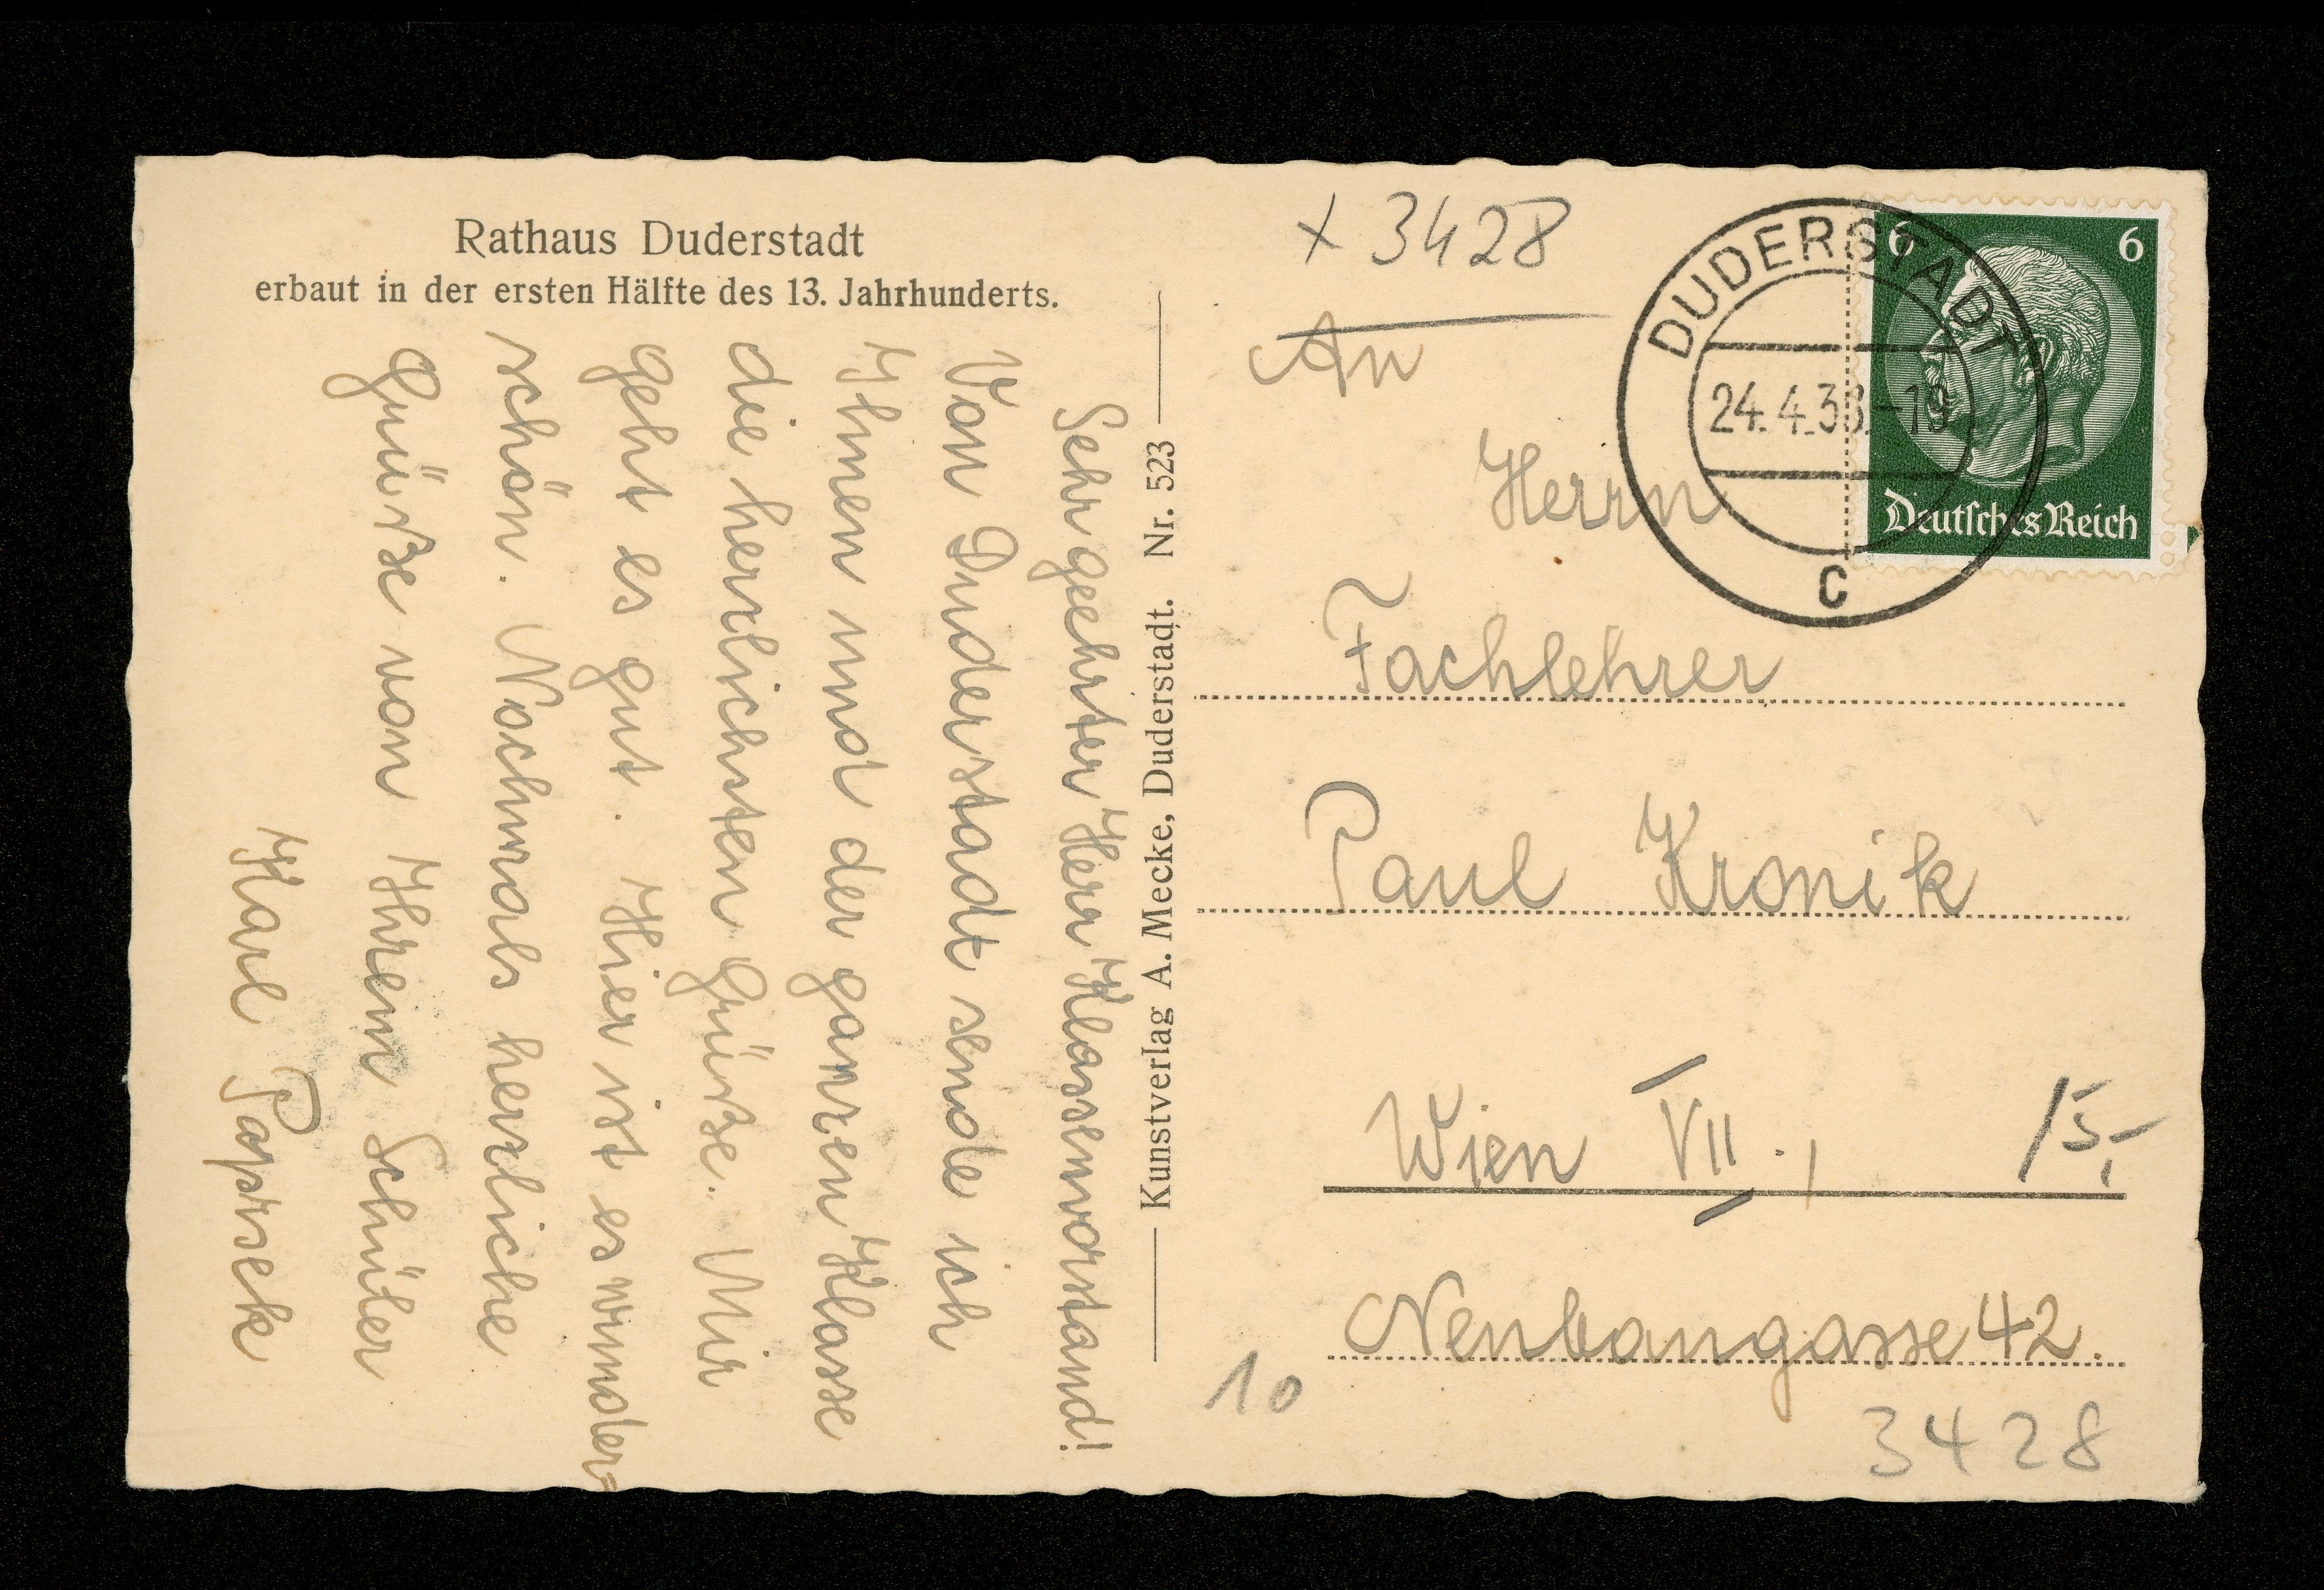 Rathaus Duderstadt
erbaut in der ersten Hälfte des 13. Jahrhunderts.
Sehr geehrter Herr Klassenvorstand!
Von Duderstadt sende ich
Ihnen und der ganzen Klasse
die herzlichsten Grüße. Mir
geht es gut. Hier ist es wunder=
schön. Nochmals herzliche
Grüße von Ihrem Schüler
Karl Papsek
Kunstverlag A. Mecke, Duderstadt. Nr. 523
+ 3428
DUDERSTADT
24.4.38.-19
C
6 6
Deutsches Reich
An
Herrn
Fachlehrer
Paul Kronik
Wien VII.,
Neubaugasse 42.
10
3428